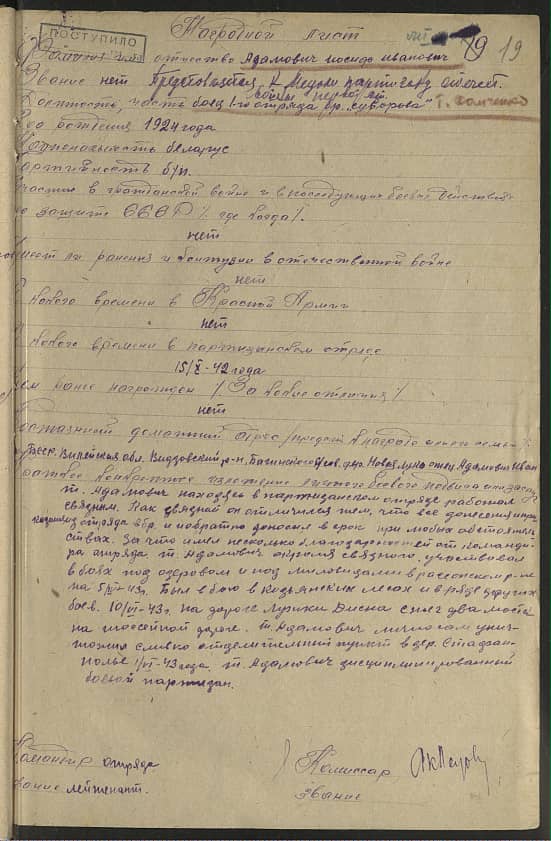 ПОСТУПИЛО
Наградной лист
19 19
Фамилия имя отчество Адамович Иосиф Иванович
Звание нет Представляется к Медали партизану отечест.
войны первой ст.
Должность, часть боец 1-го отряда бр. "Суворова"
Год рождения 1924 года
Национальность беларус
Партийность б/п.
Участие в гражданской войне и в последующих боевых действиях
по защите СССР /. где когда/.
нет
Имеет ли ранения и контузии в отечественной войне
нет
С какого времени в Красной Армии
нет
С какого времени в партизанском отряде
15/X-42 года
Чем ранее награжден /. За какие отличия /.
нет
Постоянный домашний адрес /представ к награде и его семьи
БССР, Вилейская обл. Видзовский р-н, дер. Новая отец Адамович Иван
Краткое конкретное изложение личного боевого подвига или заслуг
т. Адамович находясь в партизанском отряде работал
связным. Как связной он отличился тем, что все донесения
отряда в бр. и обратно доносил в срок при любых обстоятель
ствах. За что имел несколько благодарностей от командира
отряда. т. Адамович окромя связного, участвовал
в боях под и под в россонском р-не
на 5/ -43 г. Был в бою в Козьянских лесах и в ряде других
боев. 10/VI-43 г. на дороге Лужки Дисна сжег два моста
на шоссейной дороге. т. Адамович лично сам унич-
тожил сливно отделительный пункт в дер.
полье 1/VI-43 года т. Адамович дисциплинированный
боевой партизан.
Командир отряда
звание лейтенант.
Комиссар
звание